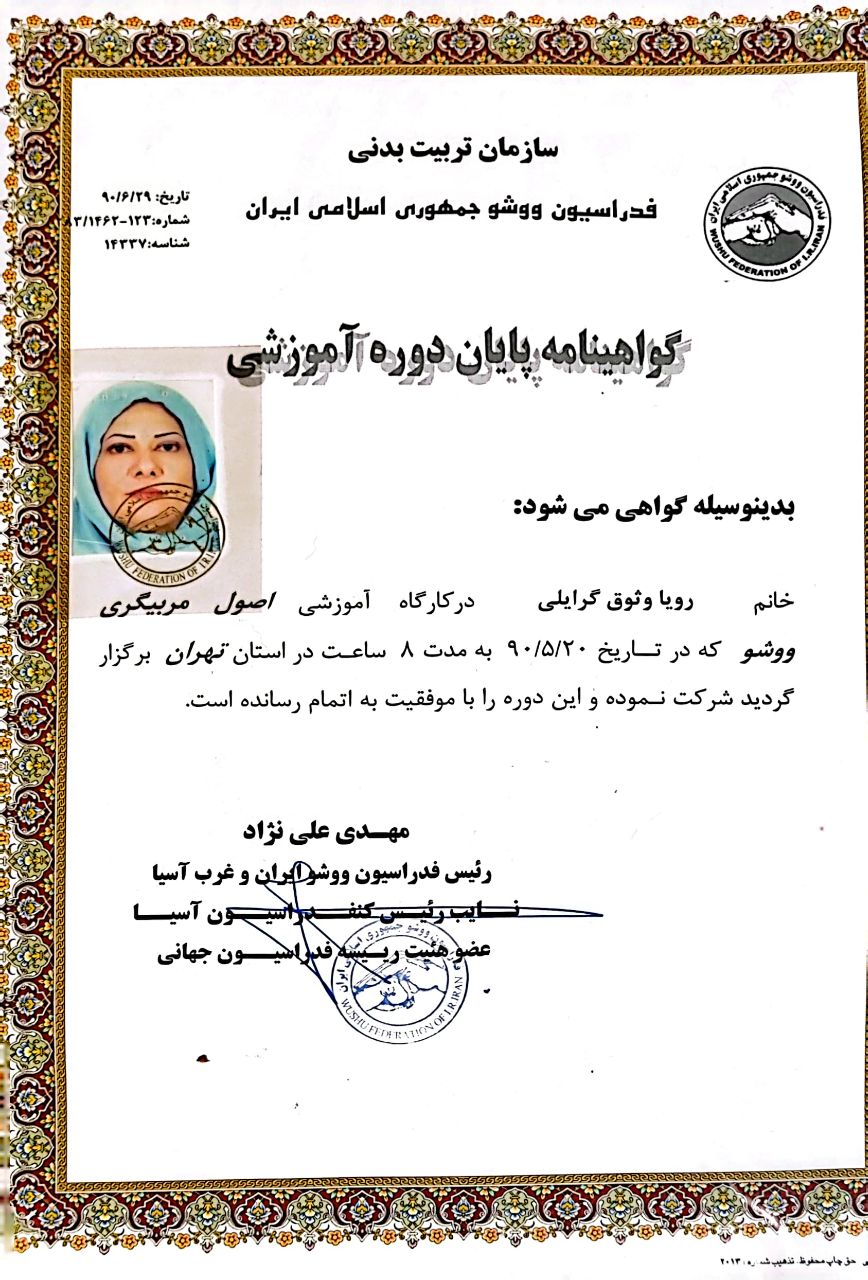 سازمان تربیت بدنی
فدراسیون ووشو جمهوری اسلامی ایران
تاریخ: ۹۰/۶/۲۹
شماره: ۱۲۳-۸۳/۱۴۶۲
شناسه: ۱۴۳۳۷
فدراسیون ووشو جمهوری اسلامی ایران
WUSHU FEDERATION OF I.R.IRAN
گواهینامه پایان دوره آموزشی
WUSHU FEDERATION OF I.R.I
بدینوسیله گواهی می شود:
خانم رویا وثوق گرایلی درکارگاه آموزشی اصول مربیگری
ووشو که در تاریخ ۹۰/۵/۲۰ به مدت ۸ ساعت در استان تهران برگزار
گردید شرکت نموده و این دوره را با موفقیت به اتمام رسانده است.
مهدی علی نژاد
رئیس فدراسیون ووشو ایران و غرب آسیا
نایب رئیس کنفدراسیون آسیا
عضو هئیت رییسه فدراسیون جهانی
فدراسیون ووشو جمهوری اسلامی ایران
WUSHU FEDERATION OF I.R.IRAN
حق چاپ محفوظ. تذهیب شماره: ۲۰۱۳